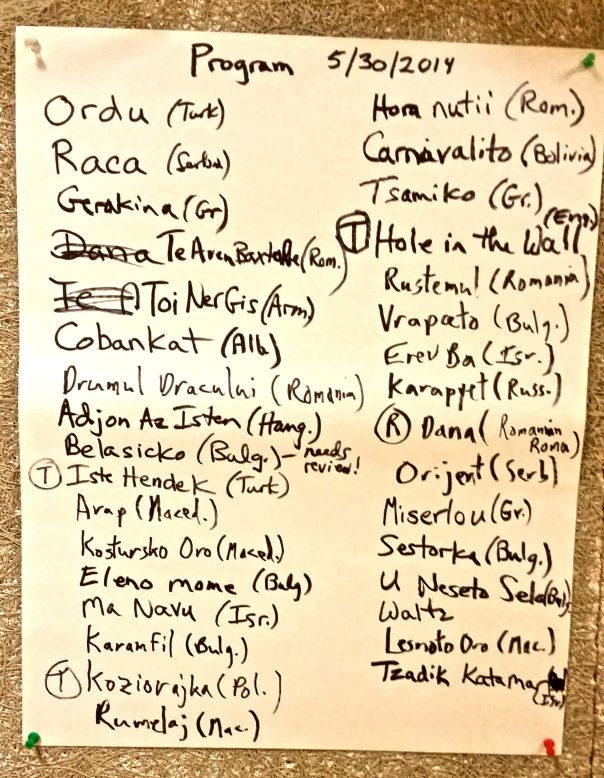 Program 5/30/2014
Ordu (Turk)
Raca (Serbia)
Gerakina (Gr)
Dana Te Aven Baxtale (Rom.)
Te A Toi Ner Gis (Arm)
Cobankat (Alb)
Drumul Dracului (Romania)
Adjon Az Isten (Hung.)
Belasicko (Bulg.) - needs review!
T Iste Hendek (Turk)
Arap (Maced.)
Kostursko Oro (Maced.)
Eleno mome (Bulg)
Ma Navu (Isr.)
Karamfil (Bulg.)
T Koziorajka (Pol.)
Rumelaj (Mac.)
Hora nutii (Rom.)
Carnavalito (Bolivia)
Tsamiko (Gr.)
T Hole in the Wall (Eng.)
Rustemul (Romania)
Vrapceto (Bulg.)
Erev Ba (Isr.)
Karapyet (Russ.)
R Dana (Romanian Roma)
Orijent (Serb)
Miserlou (Gr.)
Sestorka (Bulg.)
U Neseto Selo (Bulg)
Waltz
Lesnoto Oro (Mac.)
Tzadik Katamar (Isr)